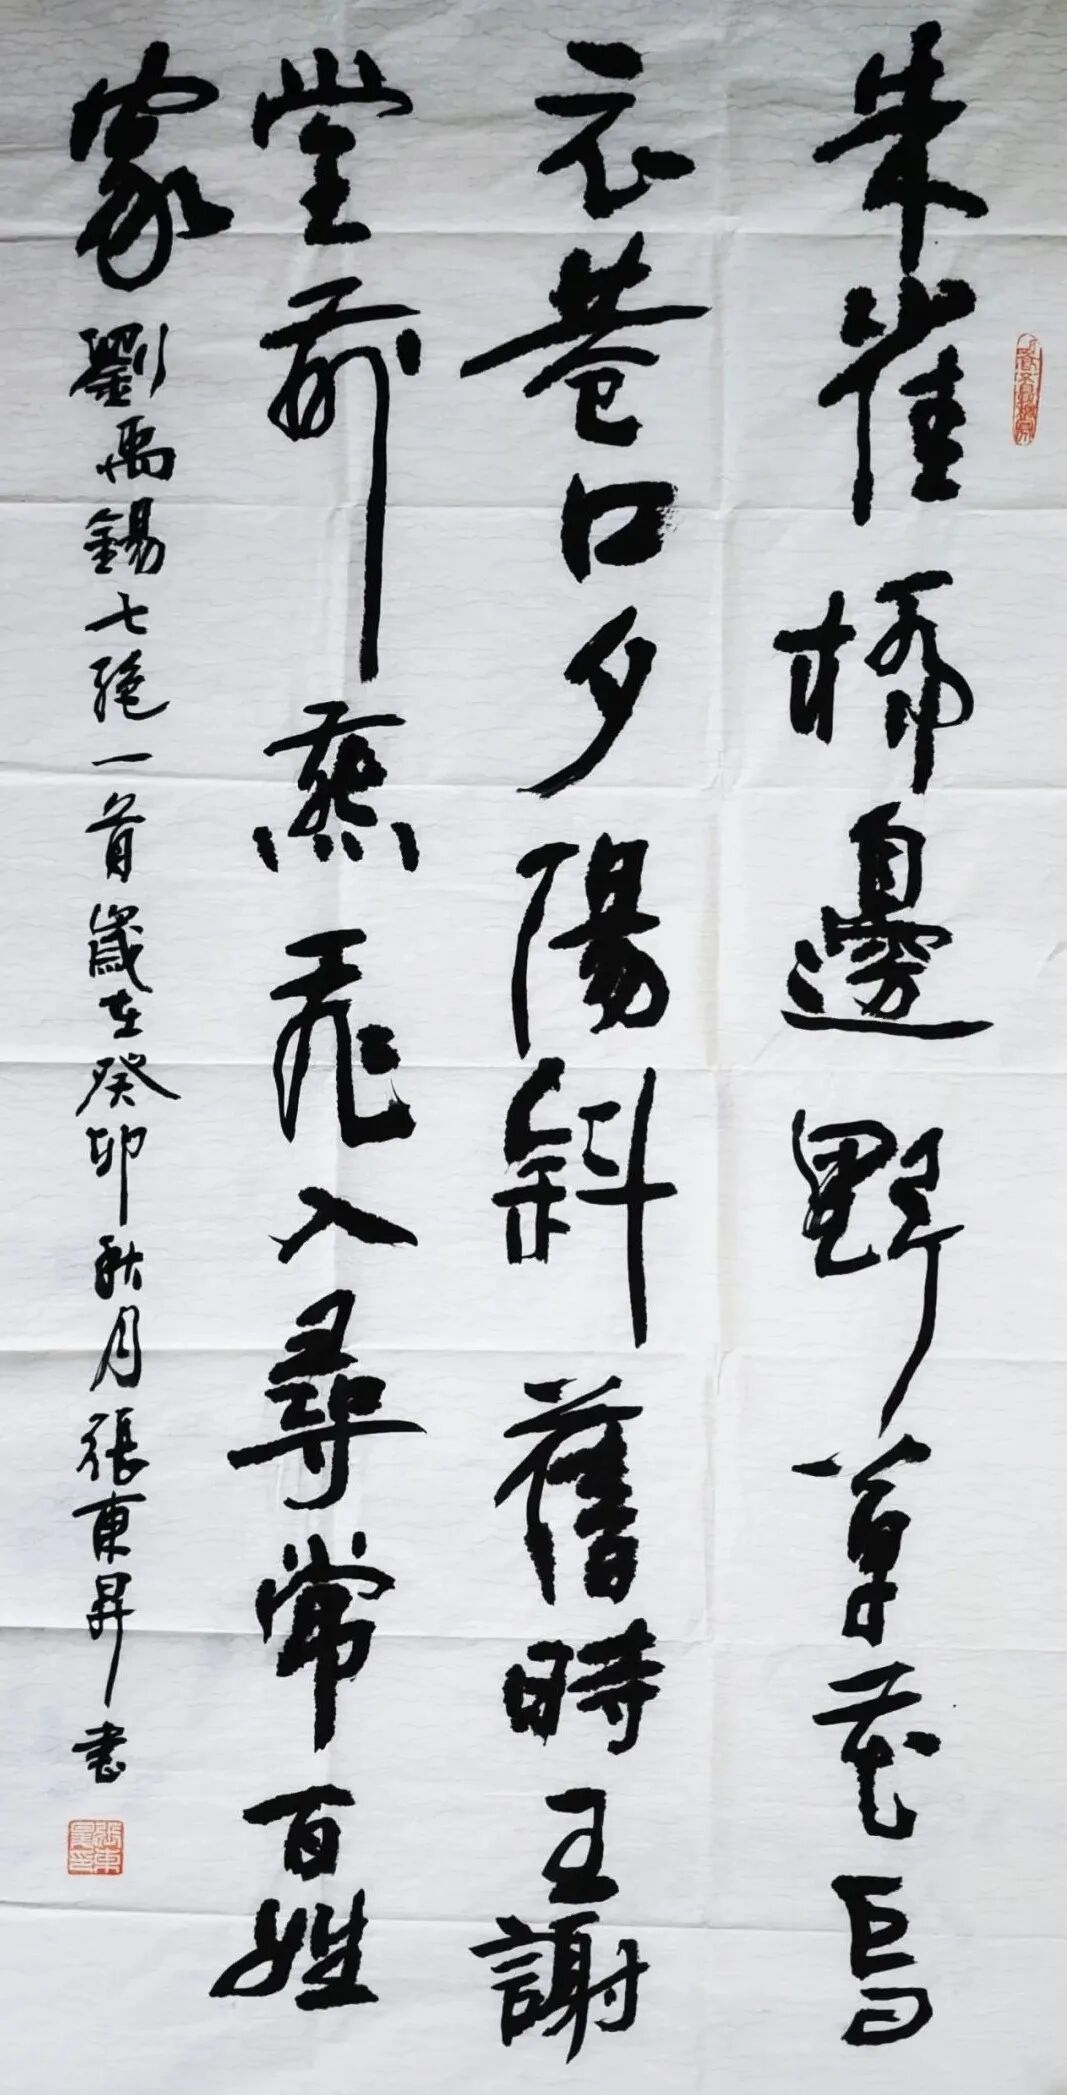 朱雀橋邊野草花烏
衣巷口夕陽斜舊時王謝
堂前燕飛入尋常百姓
家
劉禹錫七絕一首歲在癸卯秋月張東昇書